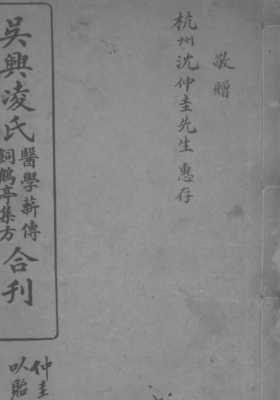 敬贈
杭州沈仲圭先生 惠存
吳興凌氏
醫學薪傳
飼鶴亭集方
合刊
仲圭
以貽